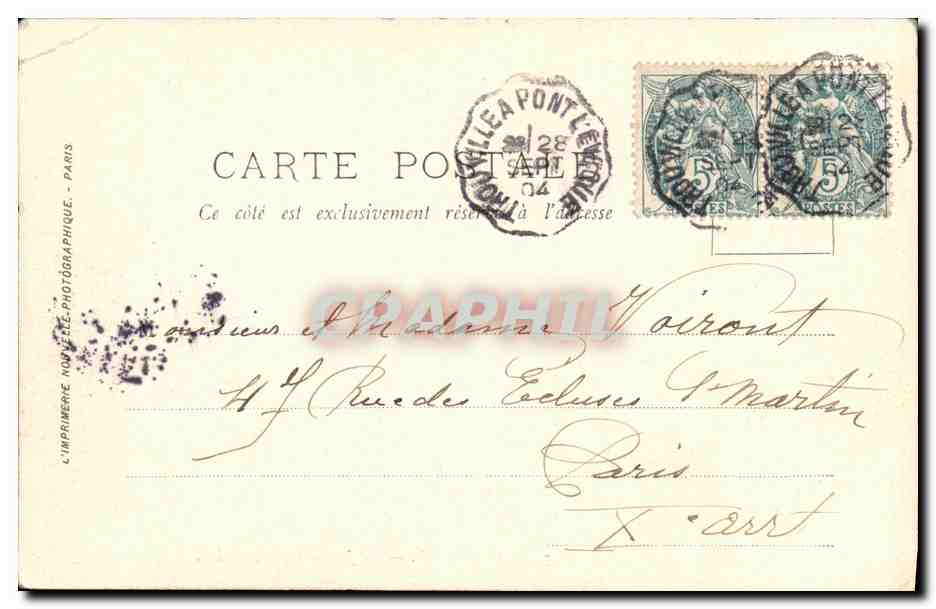 CARTE POSTALE
Ce côté est exclusivement réservé à l'adresse
TROUVILLE A PONT L'EVEQUE
28
SEPT
04
5
POSTES
5
POSTES
L'IMPRIMERIE NOUVELLE PHOTOGRAPHIQUE. - PARIS
CPAPHIL
Monsieur et Madame Voiront
47 Rue des Ecluses St Martin
Paris
X arrt